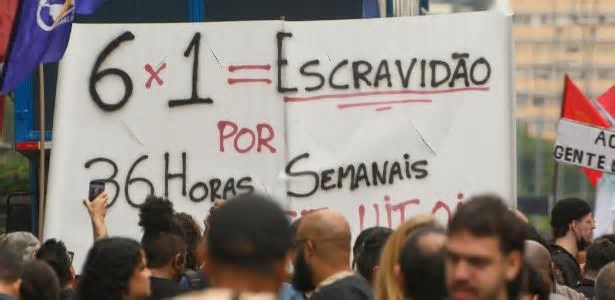 6x1=ESCRAVIDÃO
POR
36 HORAS SEMANAIS
GENTE